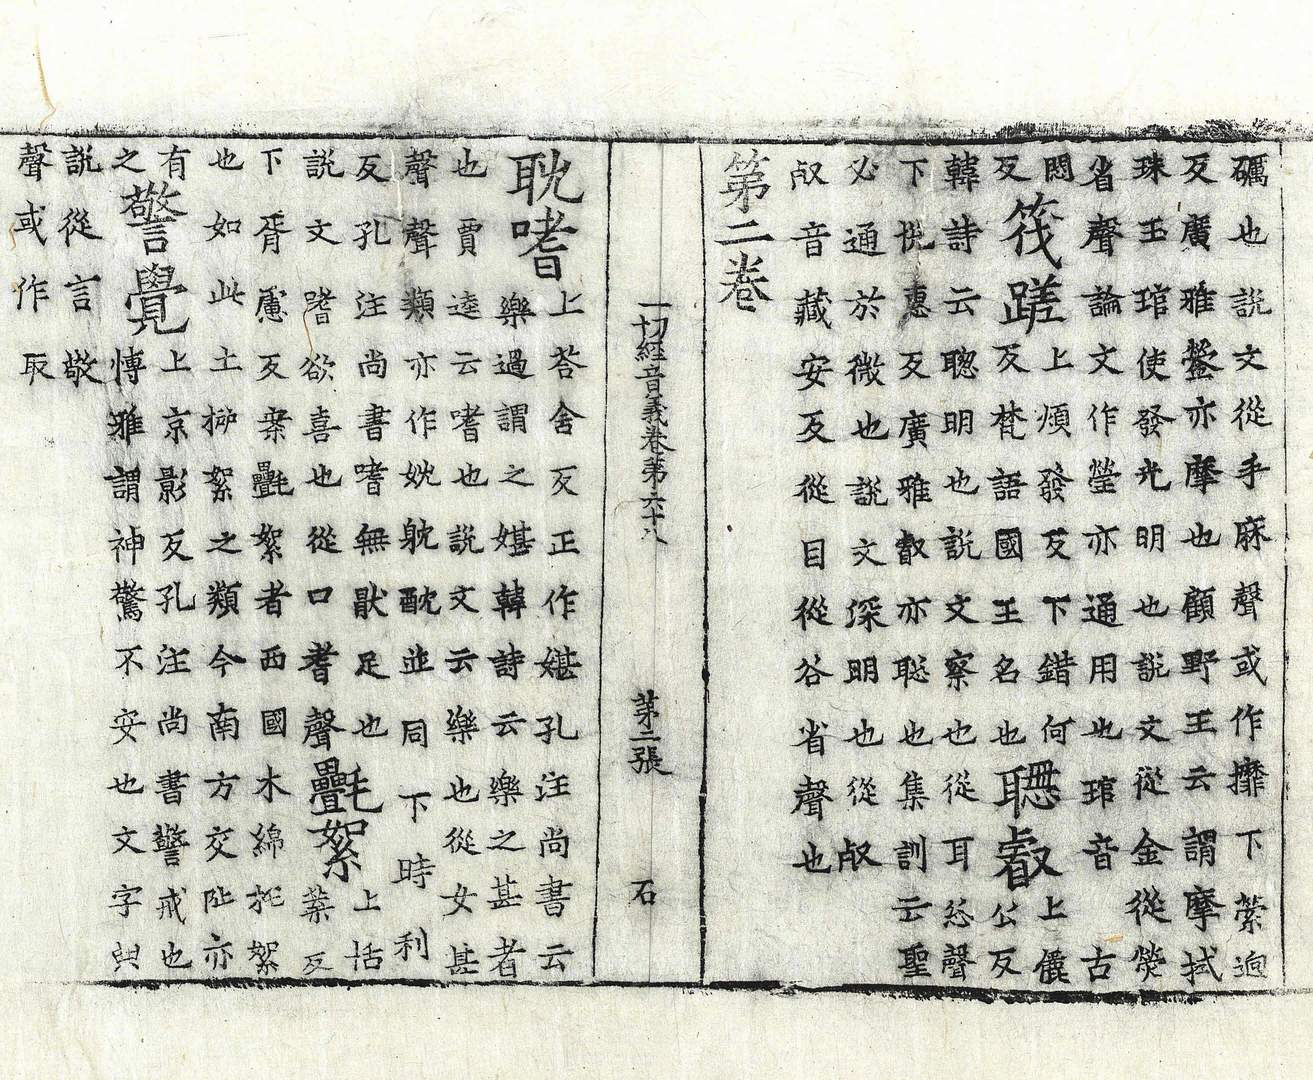 礪也說文從手麻聲或作攠下縈逈
反廣雅鎣亦摩也顧野王云謂摩拭
珠玉琯使發光明也說文從金從熒
省聲論文作瑩亦通用也琯音古
悶上煩發反下錯何
反筏蹉反梵語國王名也聰叡上儂公反
韓詩云聰明也說文察也從耳悤聲
下恱惠反廣雅叡亦聡也集訓云聖
必通於微也說文深明也從㕡
㕡音藏安反從目從谷省聲也
第二卷
一切經音義卷第六十八 第二張 石
耽嗜上荅含反正作媅孔注尚書云
樂過謂之媅韓詩云樂之甚者
也賈逵云嗜也說文云樂也從女甚
聲聲類亦作妉躭酖並同下時利
反孔注尚書嗜無猒足也
說文嗜欲喜也從口耆聲㲲絮上恬葉反
下胥慮反案㲲絮者西國木綿花絮
也如此土柳絮之類今南方交阯亦
有警覺上京影反孔注尚書警戒也
之博雅謂神驚不安也文字典
說從言敬
聲或作㪅